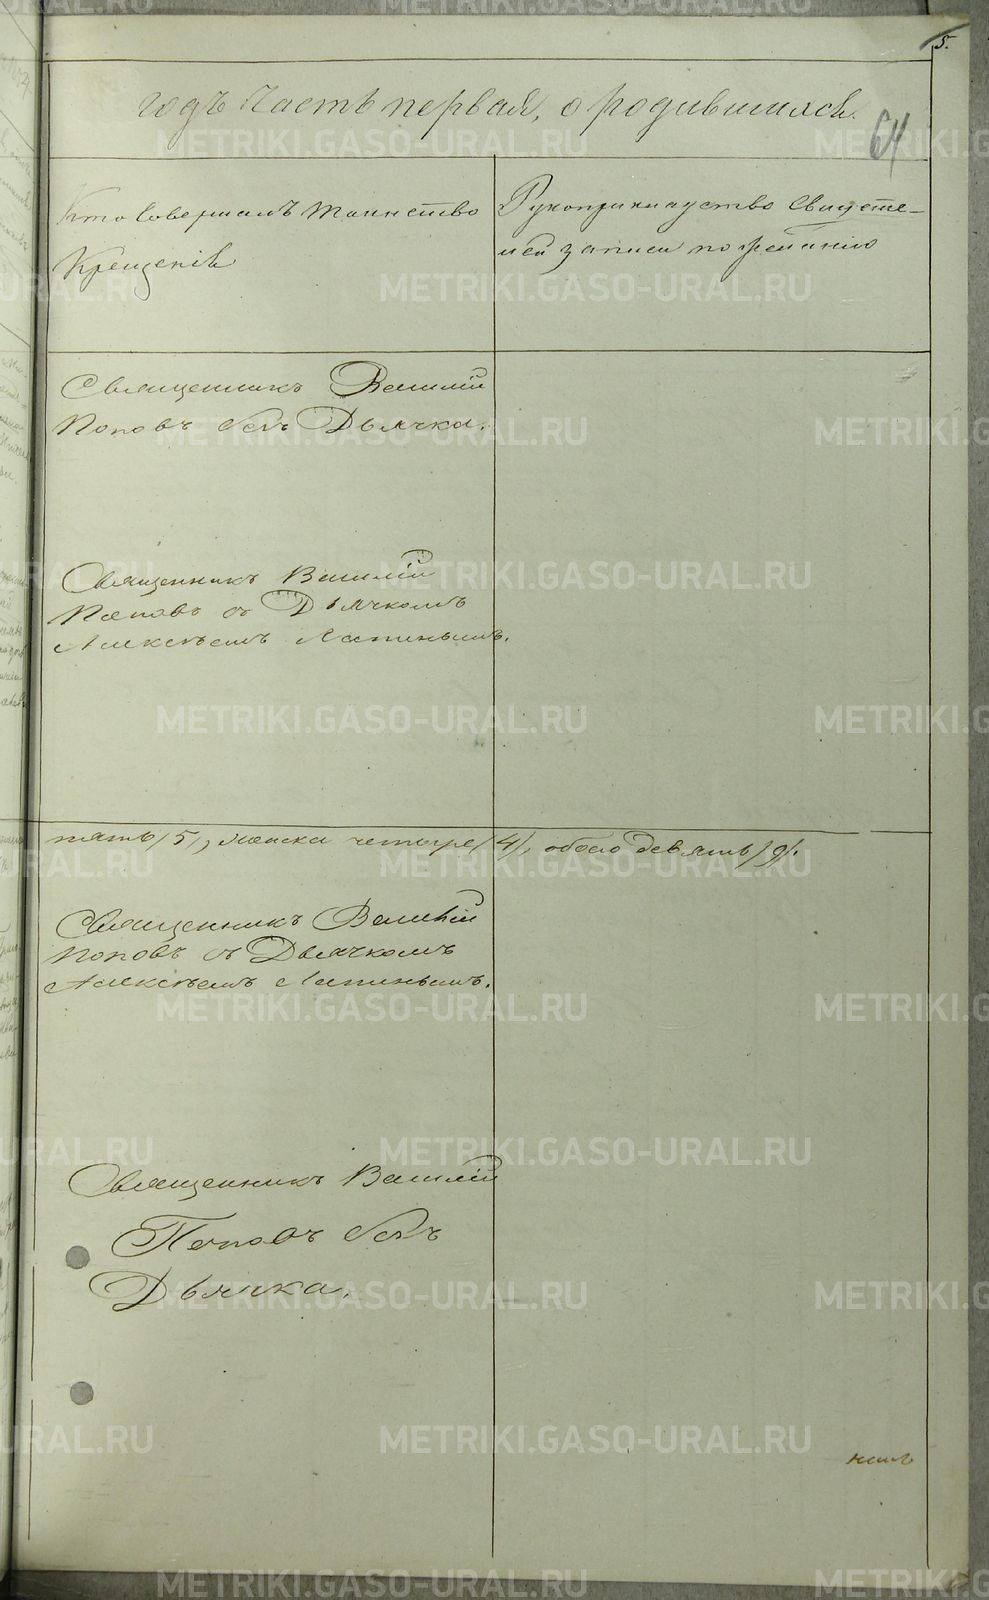 5.
годъ Часть первая, о родившихся.
64
Кто совершалъ таинство
Крещенія
Рукоприкладство свидѣте-
лей записи по желанію
Священникъ Василій
Поповъ безъ Дьячка.
Священникъ Василій
Поповъ съ Дьячкомъ
Алексѣемъ Лапинымъ.
пять /5/, женска четыре /4/, обоего девять /9/.
Священникъ Василій
Поповъ съ Дьячкомъ
Алексѣемъ Лапинымъ.
Священникъ Василій
Поповъ безъ
Дьячка.
METRIKI.GASO-URAL.RU